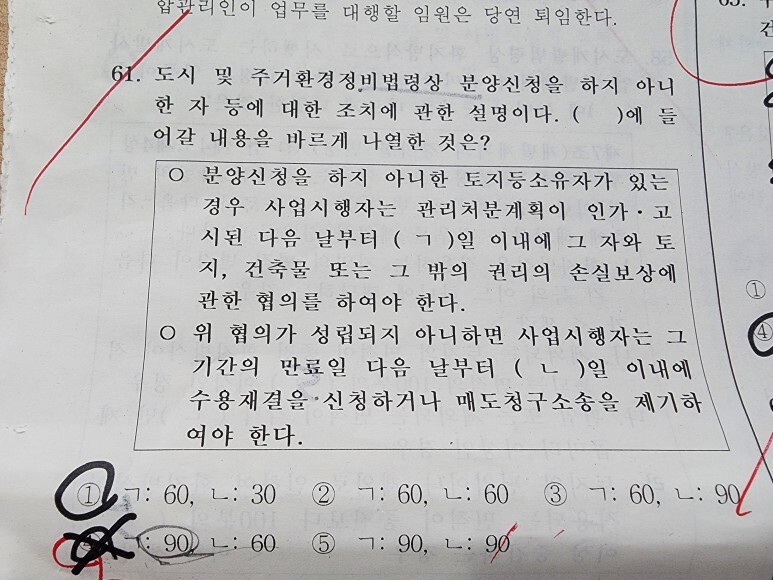 압관리인이 업무를 대행할 임원은 당연 퇴임한다.
61. 도시 및 주거환경정비법령상 분양신청을 하지 아니
한 자 등에 대한 조치에 관한 설명이다. (    )에 들
어갈 내용을 바르게 나열한 것은?
○ 분양신청을 하지 아니한 토지등소유자가 있는
경우 사업시행자는 관리처분계획이 인가·고
시된 다음 날부터 ( ㄱ )일 이내에 그 자와 토
지, 건축물 또는 그 밖의 권리의 손실보상에
관한 협의를 하여야 한다.
○ 위 협의가 성립되지 아니하면 사업시행자는 그
기간의 만료일 다음 날부터 ( ㄴ )일 이내에
수용재결을 신청하거나 매도청구소송을 제기하
여야 한다.
① ㄱ: 60, ㄴ: 30 ② ㄱ: 60, ㄴ: 60 ③ ㄱ: 60, ㄴ: 90
ㄱ: 90, ㄴ: 60 ⑤ ㄱ: 90, ㄴ: 90
①
④